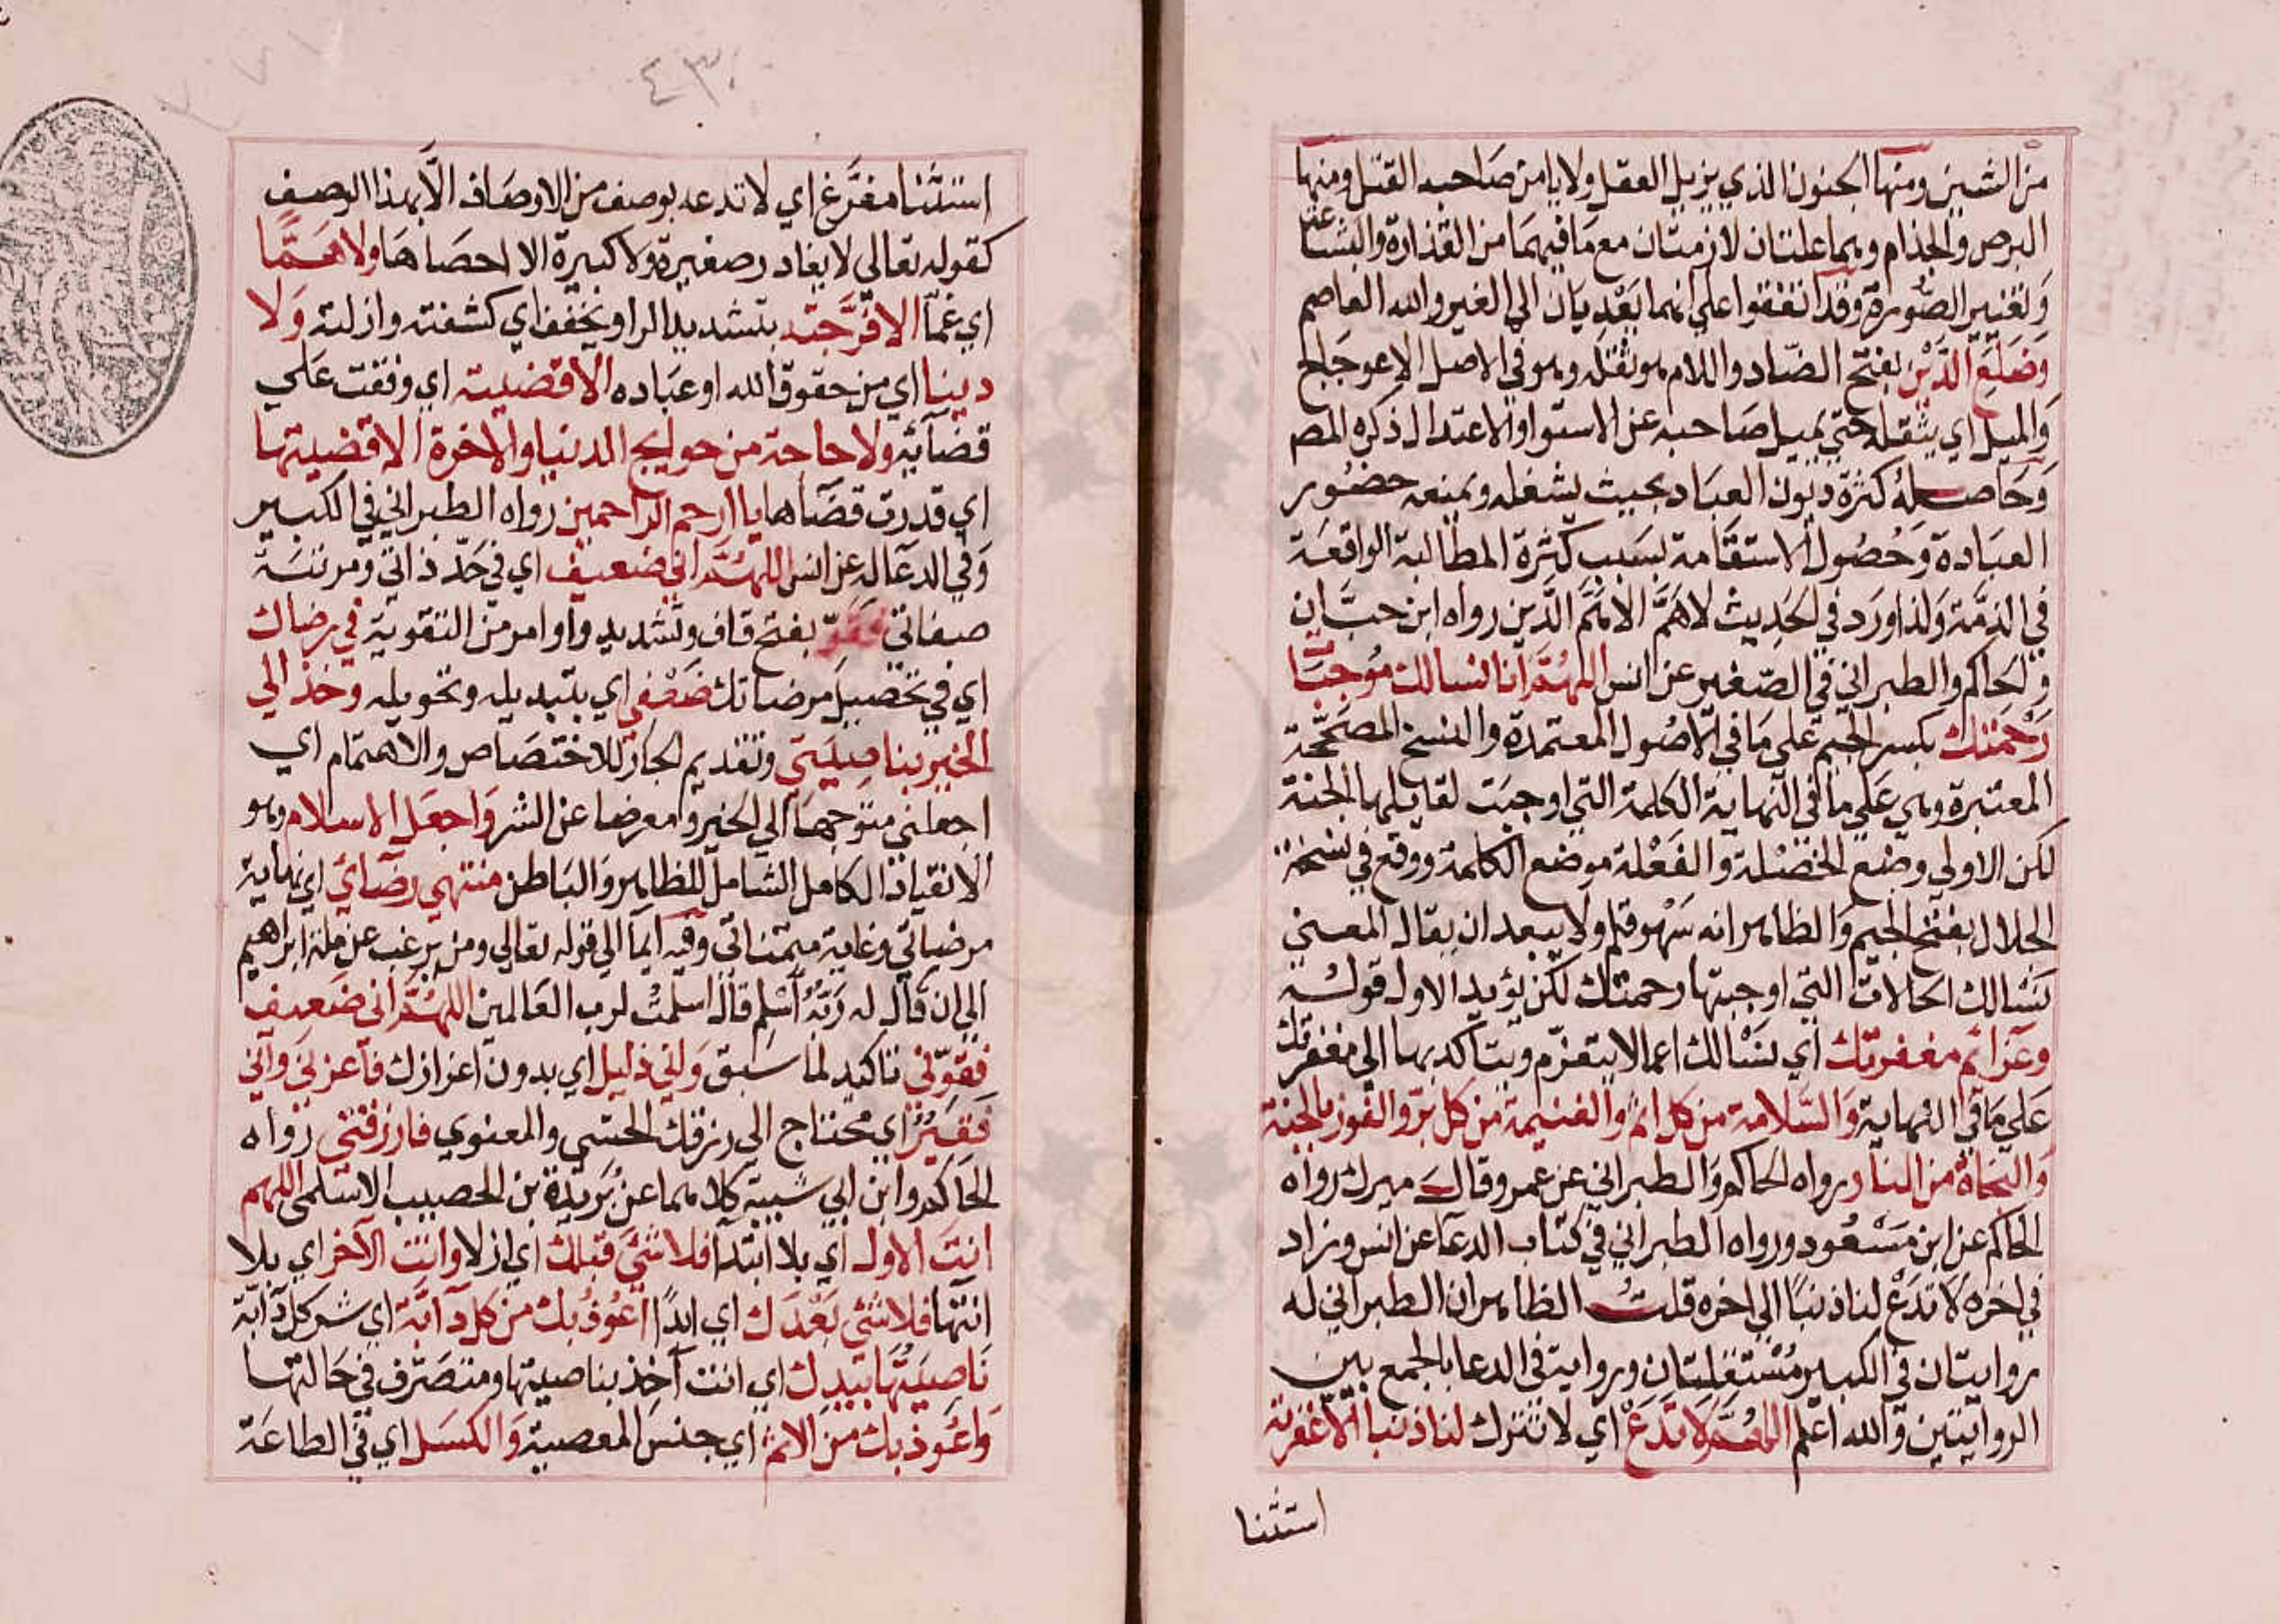 من الشين ومنها الجنون الذي يزيل العقل ولا يامن صاحبه القتل ومنها
البرص والجذام وهما علتان لازمتان مع ما فيهما من القذارة والبشاعة
وتغيير الصورة وقد اتفقوا علي انهما يعديان الي الغير والله العاصم
وضلع الدين بفتح الضاد واللام هو ثقله وهو في الاصل الاعوجاج
والميل اي يثقله حتي يميل صاحبه عن الاستوا والاعتدال ذكره المص
وحاصله كثرة ديون العباد بحيث يشغله ويمنعه حضور
العبادة وحصول الاستقامة بسبب كثرة المطالبة الواقعة
في الذمة ولذا ورد في الحديث لا هم الا هم الدين رواه ابن حبان
والحاكم والطبراني في الصغير عن انس اللهم انا نسالك موجبات
رحمتك بكسر الجيم علي ما في الاصول المعتمدة والنسخ المصححة
المعتبرة وهي علي ما في النهاية الكلمة التي اوجبت لقايلها الجنة
لكن الاولي وضع الخصلة والفعلة موضع الكلمة ووقع في نسخة
الجلال بفتح الجيم والظاهر انه سهو قلم ولا يبعد ان يقال المعني
نسالك الحالات التي اوجبتها رحمتك لكن يؤيد الاول قوله
وعزائم مغفرتك اي نسالك اعمالا يتعزم ويتاكد بها الي مغفرتك
علي ما في النهاية والسلامة من كل اثم والغنيمة من كل بر والفوز بالجنة
والنجاة من النار رواه الحاكم والطبراني عن عمر وقال ميرك رواه
الحاكم عن ابن مسعود ورواه الطبراني في كتاب الدعا عن انس وزاد
في اخره لا تدع لنا ذنبا الي اخره قلت الظاهر ان الطبراني له
روايتان في الكبير مستقلتان ورواية في الدعا بالجمع بين
الروايتين والله اعلم اللهم لا تدع اي لا تترك لنا ذنبا الا غفرته
استثنا
٤٣٠
استثنا مفرغ اي لا تدعه بوصف من الاوصاف الا بهذا الوصف
كقوله تعالي لا يغادر صغيرة ولا كبيرة الا احصاها ولا هما
اي غما الا فرجته بتشديد الرا ويخفف اي كشفته وازلته ولا
دينا اي من حقوق الله او عباده الا قضيته اي وفقت علي
قضائه ولا حاجة من حوايج الدنيا والاخرة الا قضيتها
اي قدرت قضاها يا ارحم الراحمين رواه الطبراني في الكبير
وفي الدعا له عن انس اللهم اني ضعيف اي في حد ذاتي ومرتبة
صفاتي فقو بفتح قاف وتشديد واو امر من التقوية في رضاك
اي في تحصيل مرضاتك ضعفي اي بتبديله وتحويله وخذ الي
الخير بناصيتي وتقديم الجار للاختصاص والاهتمام اي
اجعلني متوجها الي الخير ومعرضا عن الشر واجعل الاسلام وهو
الانقياد الكامل الشامل للظاهر والباطن منتهي رضائي اي نهاية
مرضاتي وغاية متمناتي وفيه ايما الي قوله تعالي ومن يرغب عن ملة ابراهيم
الي ان قال له ربه اسلم قال اسلمت لرب العالمين اللهم اني ضعيف
فقوني تاكيد لما سبق واني ذليل اي بدون اعزازك فاعزني واني
فقير اي محتاج الي رزقك الحسي والمعنوي فارزقني رواه
الحاكم وابن ابي شيبة كلاهما عن بريدة بن الحصيب الاسلمي اللهم
انت الاول اي بلا ابتدا فلا شئ قبلك اي ازلا وانت الآخر اي بلا
انتها فلا شئ بعدك اي ابدا اعوذ بك من كل دآبة اي شر كل دآبة
ناصيتها بيدك اي انت آخذ بناصيتها ومتصرف في حالتها
واعوذ بك من الاثم اي جنس المعصية والكسل اي في الطاعة